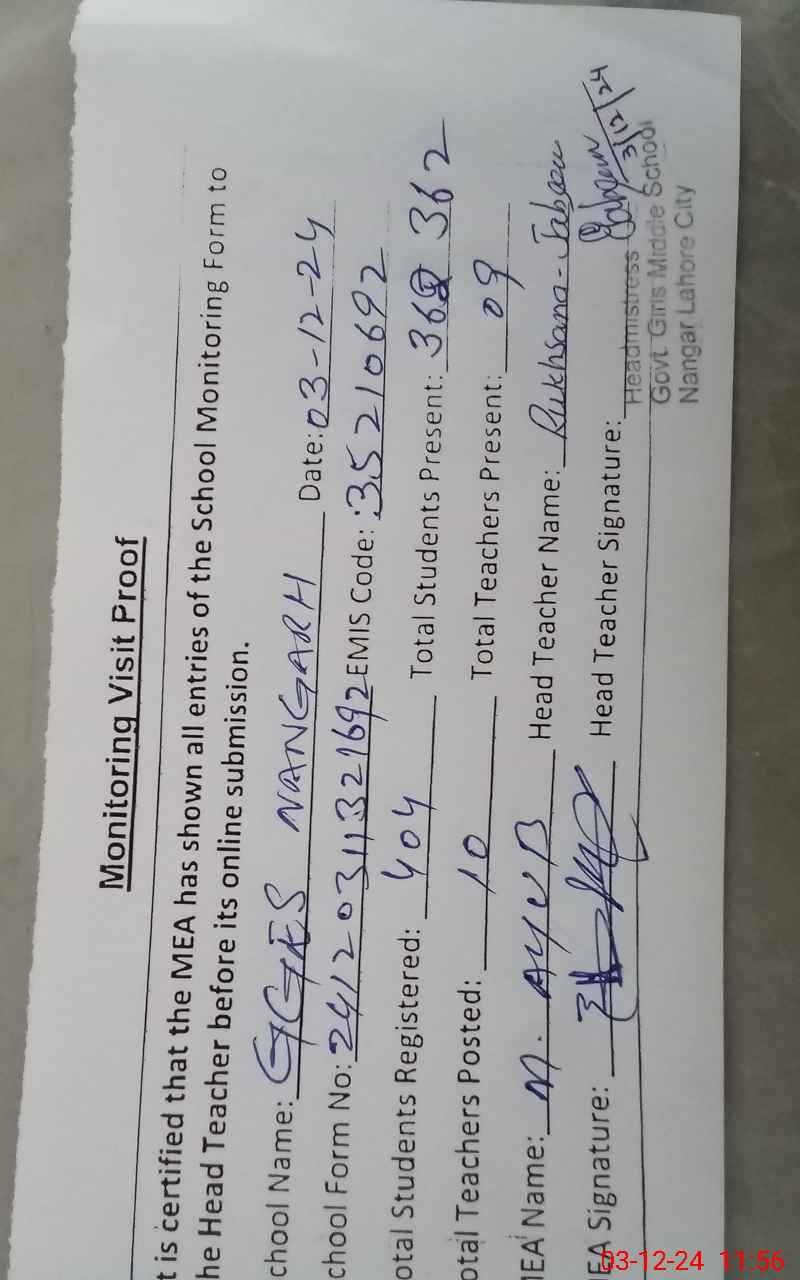 Monitoring Visit Proof
t is certified that the MEA has shown all entries of the School Monitoring Form to
he Head Teacher before its online submission.
chool Name: GGES NANGARH Date: 03-12-24
chool Form No: 24120311321692 EMIS Code: 35210692
otal Students Registered: 404 Total Students Present: 362 362
otal Teachers Posted: 10 Total Teachers Present: 09
IEA Name: M. AYUB Head Teacher Name: Rukhsana-Jabeen
EA Signature: Head Teacher Signature: 3/12/24
Headmistress
Govt. Girls Middle School
Nangar Lahore City
03-12-24 11:56